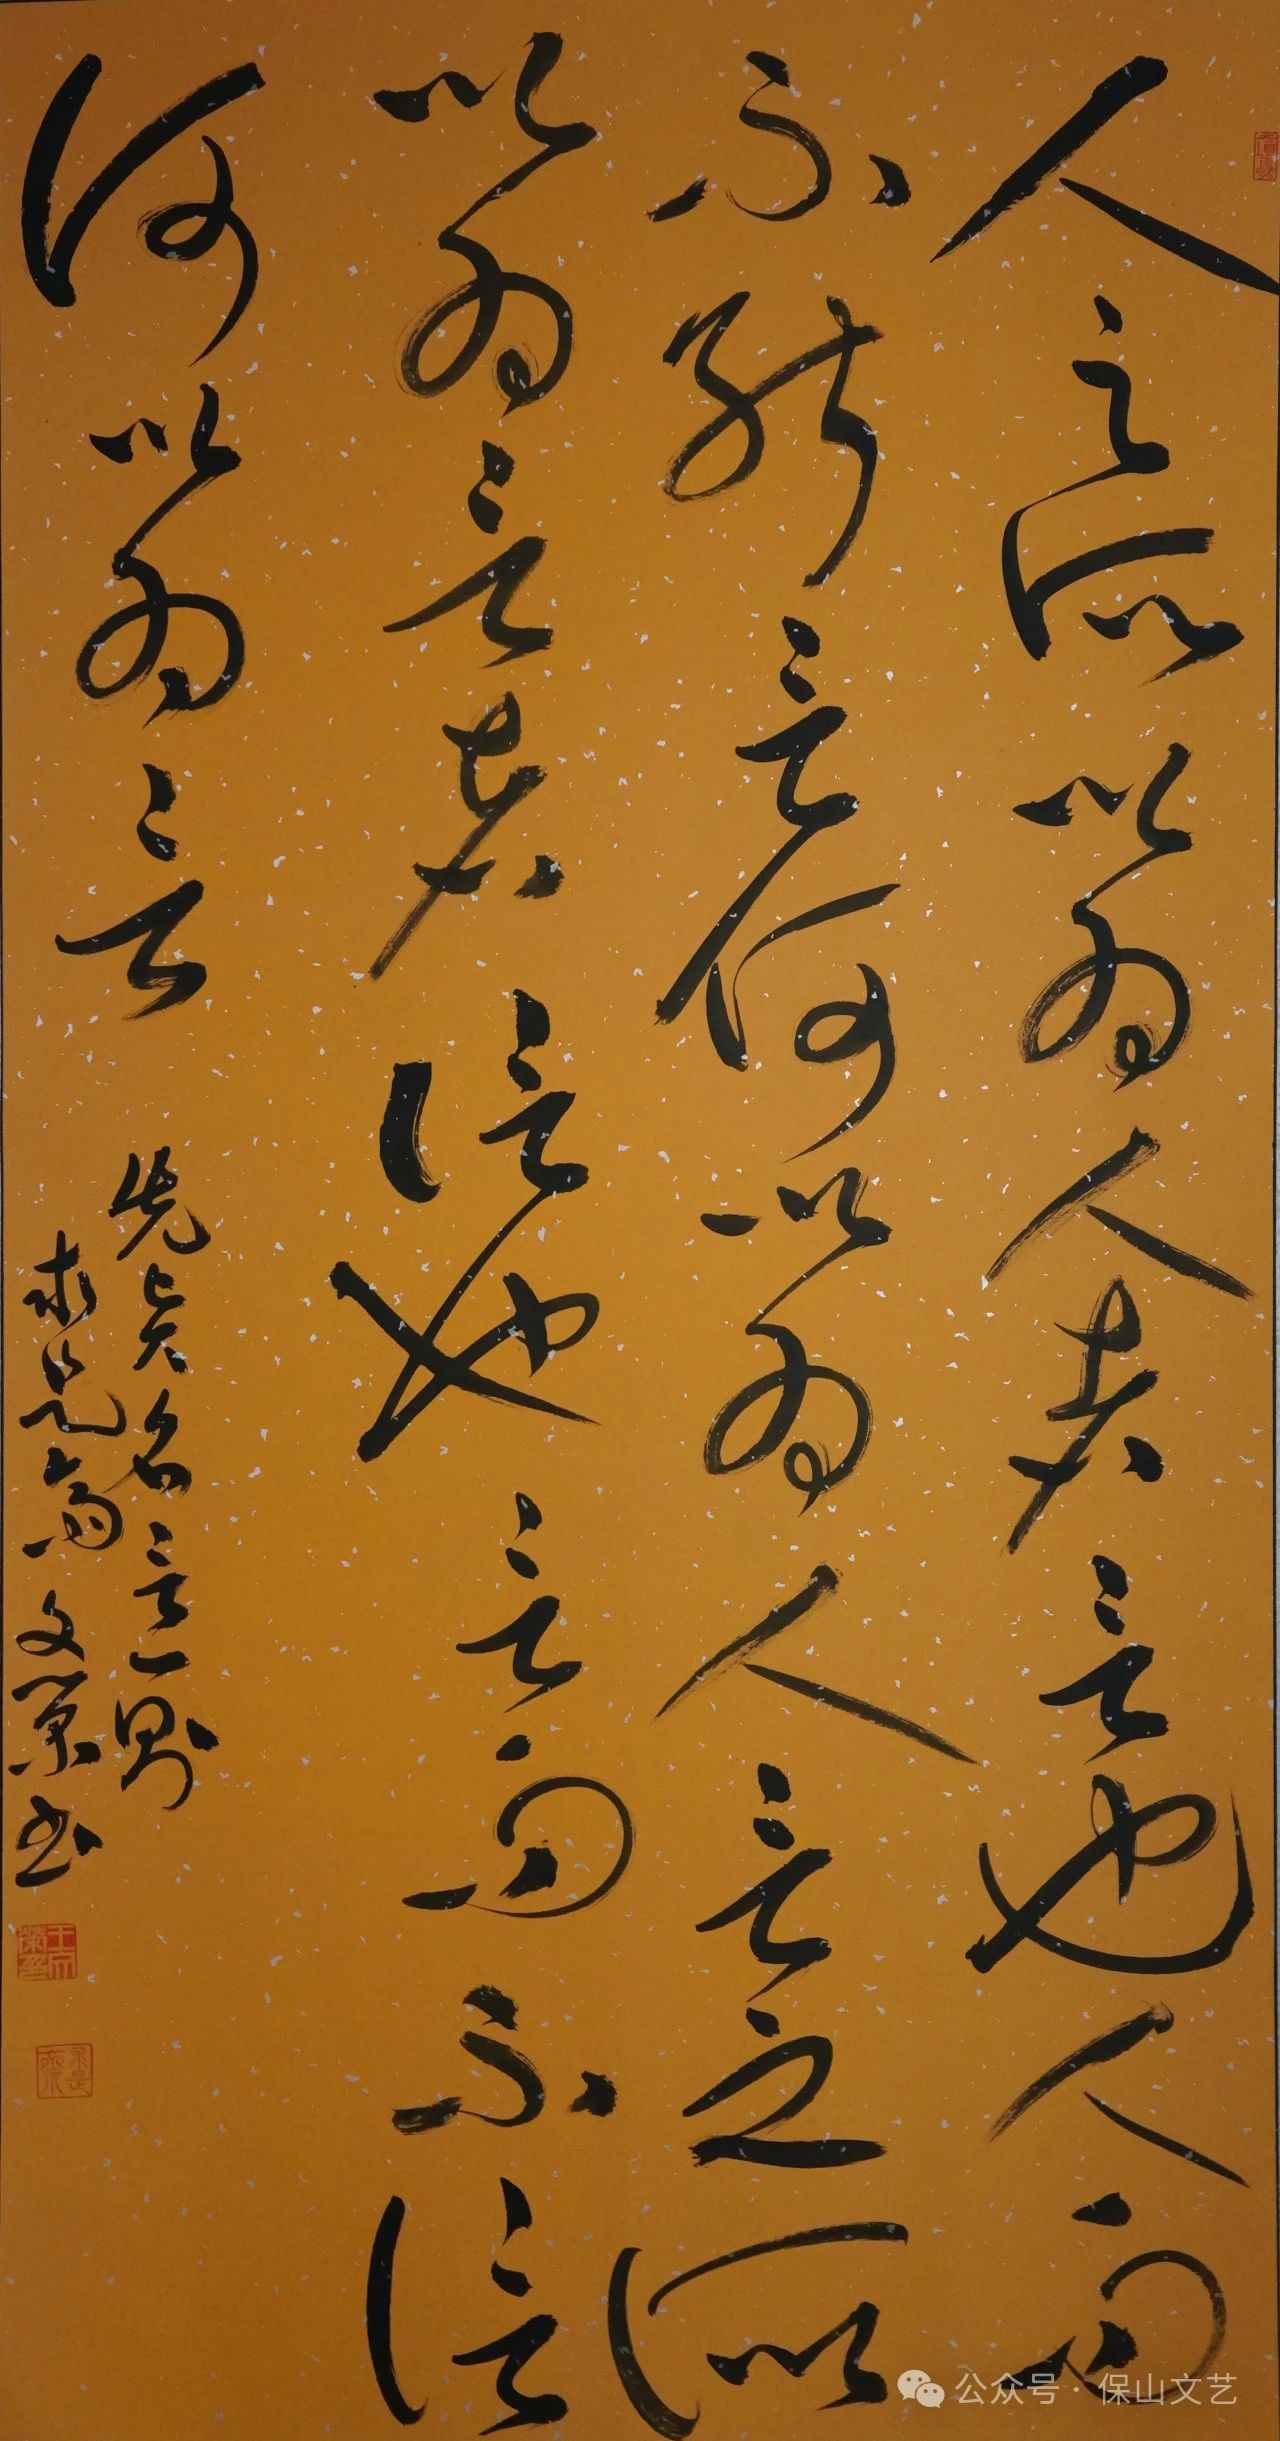 人之所以为人者言也人而
不能言何以为人言之所
以为言者信也言而不信
何以为言
先贤名言一则
求是斋文荣书
公众号·保山文艺